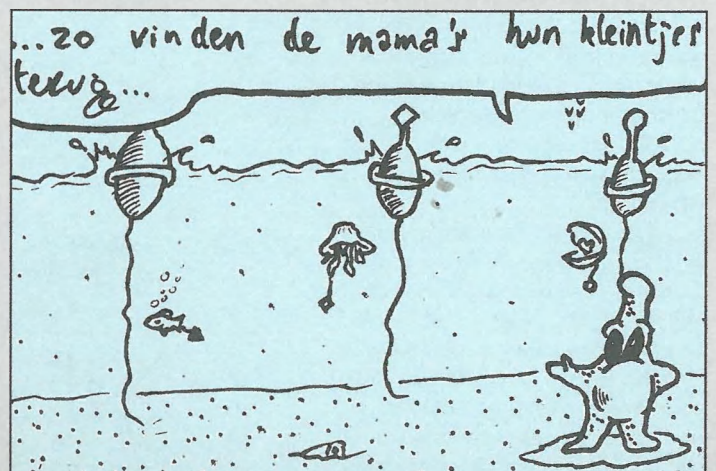 ...zo vinden de mama's hun kleintjes
terug...